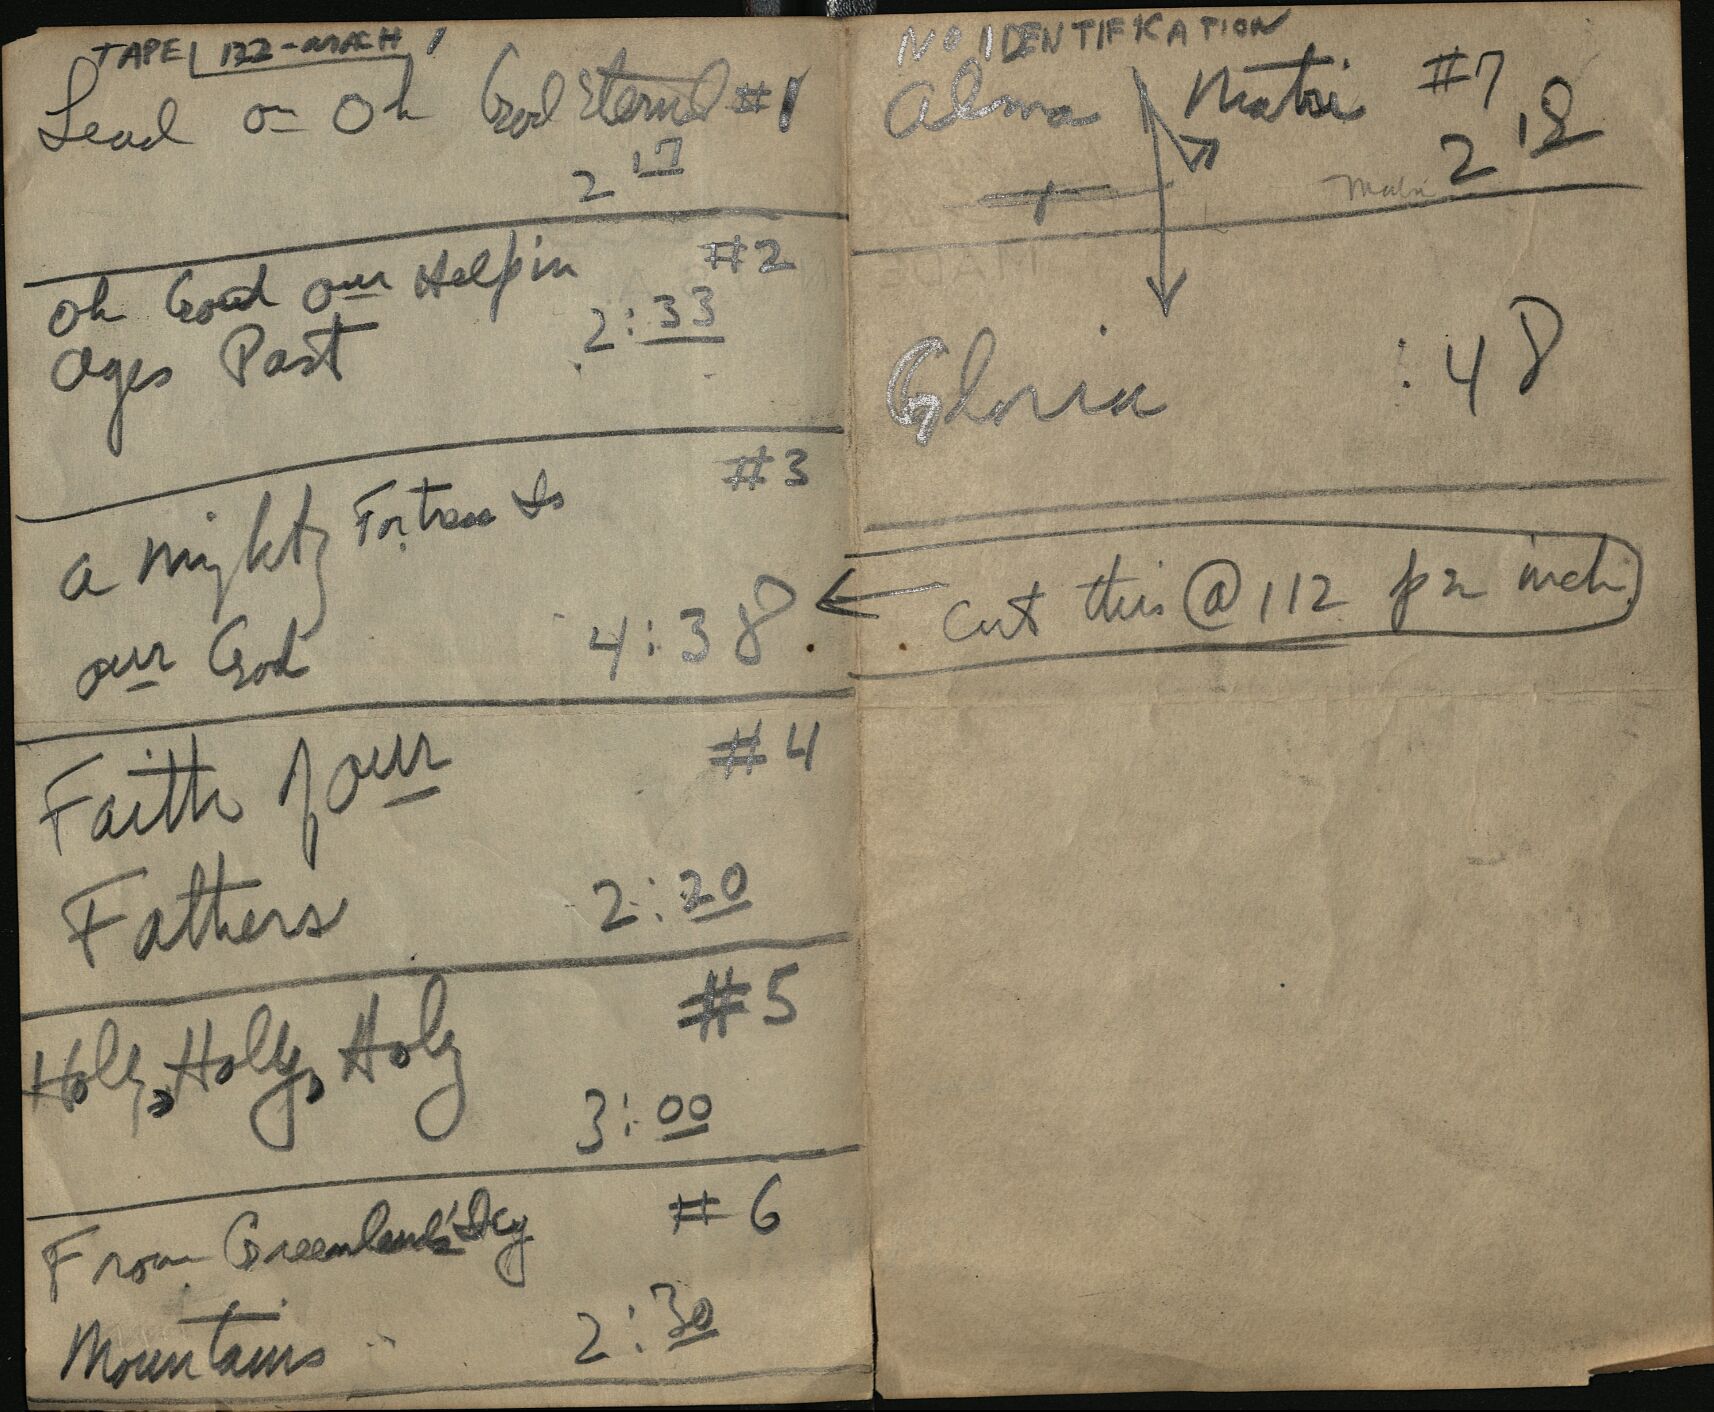 TAPE 122-MACH 1
Lead on Oh God Eternal #1
2 17
Oh God our Help in #2
Ages Past 2:33
#3
A Mighty Fortress Is
our God 4:38
Faith of our #4
Fathers 2:20
Holy, Holy, Holy #5
3:00
From Greenland's Icy #6
Mountains 2:30
NO IDENTIFICATION
Alma Matri #7
2 18
Gloria :48
Cut this @ 112 per inch.